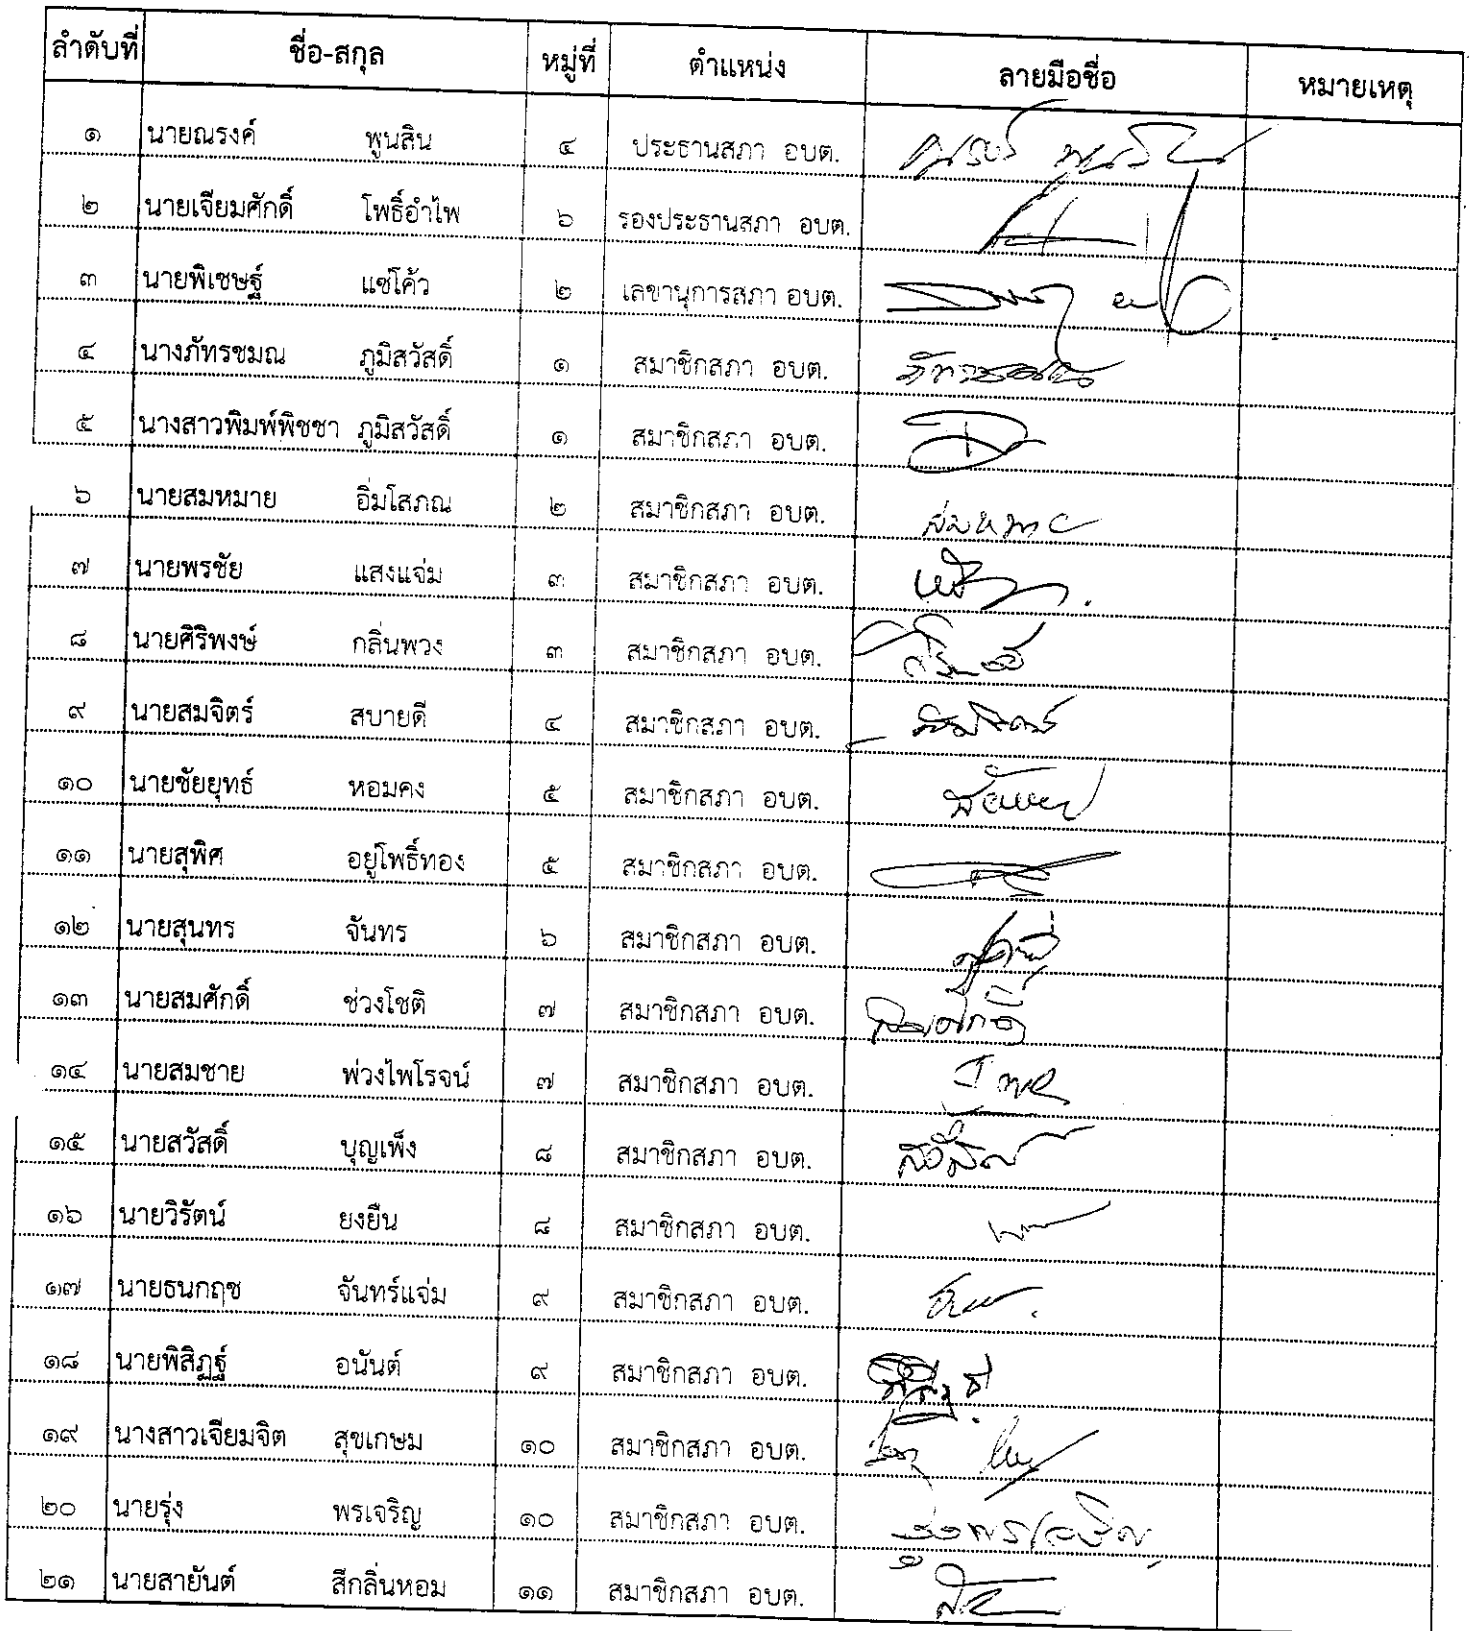 ลำดับที่ ชื่อ-สกุล หมู่ที่ ตำแหน่ง ลายมือชื่อ หมายเหตุ
๑ นายณรงค์ พูนสิน ๔ ประธานสภา อบต. ณรงค์ พูนสิน
๒ นายเจียมศักดิ์ โพธิ์อำไพ ๖ รองประธานสภา อบต.
๓ นายพิเชษฐ์ แซ่โค้ว ๒ เลขานุการสภา อบต.
๔ นางภัทรชมณ ภูมิสวัสดิ์ ๑ สมาชิกสภา อบต.
๕ นางสาวพิมพ์พิชชา ภูมิสวัสดิ์ ๑ สมาชิกสภา อบต.
๖ นายสมหมาย อิ่มโสภณ ๒ สมาชิกสภา อบต. สมหมาย
๗ นายพรชัย แสงแจ่ม ๓ สมาชิกสภา อบต.
๘ นายศิริพงษ์ กลิ่นพวง ๓ สมาชิกสภา อบต.
๙ นายสมจิตร์ สบายดี ๔ สมาชิกสภา อบต. สมจิตร์
๑๐ นายชัยยุทธ์ หอมคง ๕ สมาชิกสภา อบต.
๑๑ นายสุพิศ อยู่โพธิ์ทอง ๕ สมาชิกสภา อบต.
๑๒ นายสุนทร จันทร ๖ สมาชิกสภา อบต.
๑๓ นายสมศักดิ์ ช่วงโชติ ๗ สมาชิกสภา อบต. สมศักดิ์
๑๔ นายสมชาย พ่วงไพโรจน์ ๗ สมาชิกสภา อบต.
๑๕ นายสวัสดิ์ บุญเพ็ง ๘ สมาชิกสภา อบต. สวัสดิ์
๑๖ นายวิรัตน์ ยงยืน ๘ สมาชิกสภา อบต.
๑๗ นายธนกฤช จันทร์แจ่ม ๙ สมาชิกสภา อบต.
๑๘ นายพิสิฏฐ์ อนันต์ ๙ สมาชิกสภา อบต.
๑๙ นางสาวเจียมจิต สุขเกษม ๑๐ สมาชิกสภา อบต.
๒๐ นายรุ่ง พรเจริญ ๑๐ สมาชิกสภา อบต. รุ่ง พรเจริญ
๒๑ นายสายันต์ สีกลิ่นหอม ๑๑ สมาชิกสภา อบต.